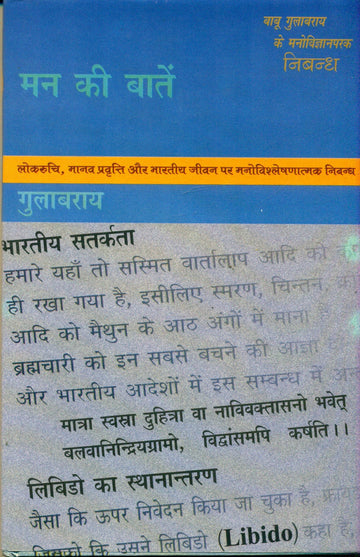 बाबू गुलाबराय
के मनोविज्ञानपरक
निबन्ध
मन की बातें
लोकरुचि, मानव प्रवृत्ति और भारतीय जीवन पर मनोविश्लेषणात्मक निबन्ध
गुलाबराय
भारतीय सतर्कता
हमारे यहाँ तो सस्मित वार्तालाप आदि को
ही रखा गया है, इसीलिए स्मरण, चिन्तन,
आदि को मैथुन के आठ अंगों में माना है
ब्रह्मचारी को इन सबसे बचने की आज्ञा
और भारतीय आदेशों में इस सम्बन्ध में
मात्रा स्वस्रा दुहित्रा वा नाविवक्तासनो भवेत्
बलवानिन्द्रियग्रामो, विद्वांसमपि कर्षति।।
लिबिडो का स्थानान्तरण
जैसा कि ऊपर निवेदन किया जा चुका है,
जिसको कि उसने लिबिडो (Libido) कहा है